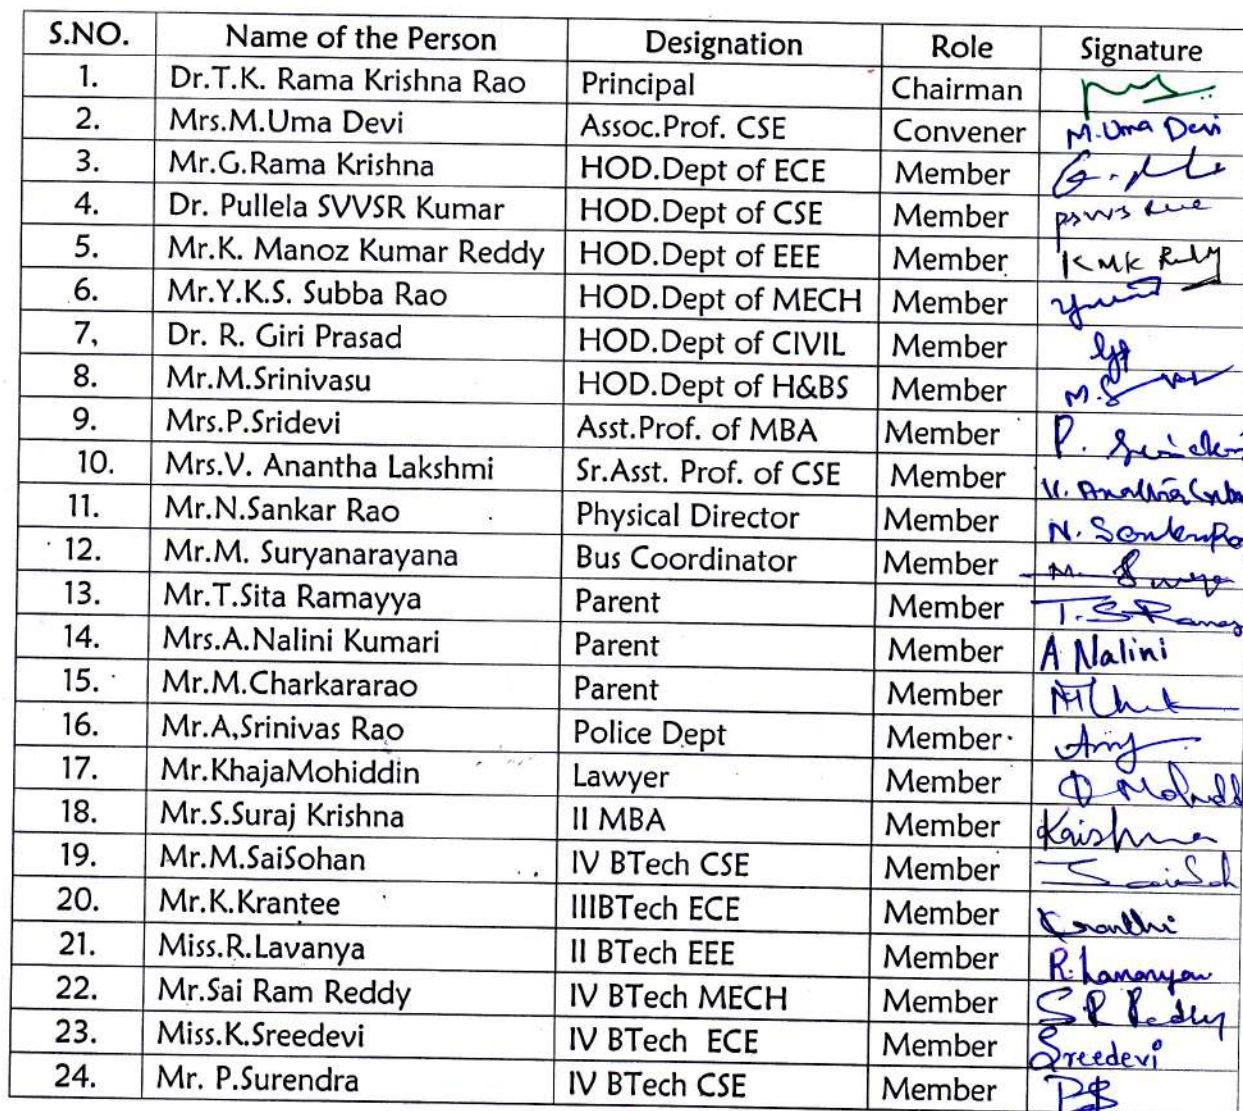 S.NO. Name of the Person Designation Role Signature
1. Dr.T.K. Rama Krishna Rao Principal Chairman
2. Mrs.M.Uma Devi Assoc.Prof. CSE Convener M.Uma Devi
3. Mr.G.Rama Krishna HOD.Dept of ECE Member
4. Dr. Pullela SVVSR Kumar HOD.Dept of CSE Member
5. Mr.K. Manoz Kumar Reddy HOD.Dept of EEE Member KMK
6. Mr.Y.K.S. Subba Rao HOD.Dept of MECH Member
7, Dr. R. Giri Prasad HOD.Dept of CIVIL Member
8. Mr.M.Srinivasu HOD.Dept of H&BS Member
9. Mrs.P.Sridevi Asst.Prof. of MBA Member P.
10. Mrs.V. Anantha Lakshmi Sr.Asst. Prof. of CSE Member V.
11. Mr.N.Sankar Rao Physical Director Member N.
12. Mr.M. Suryanarayana Bus Coordinator Member M.
13. Mr.T.Sita Ramayya Parent Member T.S
14. Mrs.A.Nalini Kumari Parent Member A Nalini
15. Mr.M.Charkararao Parent Member
16. Mr.A,Srinivas Rao Police Dept Member
17. Mr.KhajaMohiddin Lawyer Member
18. Mr.S.Suraj Krishna II MBA Member Krishna
19. Mr.M.SaiSohan IV BTech CSE Member
20. Mr.K.Krantee IIIBTech ECE Member Kranthi
21. Miss.R.Lavanya II BTech EEE Member R.
22. Mr.Sai Ram Reddy IV BTech MECH Member S R Reddy
23. Miss.K.Sreedevi IV BTech ECE Member Sreedevi
24. Mr. P.Surendra IV BTech CSE Member